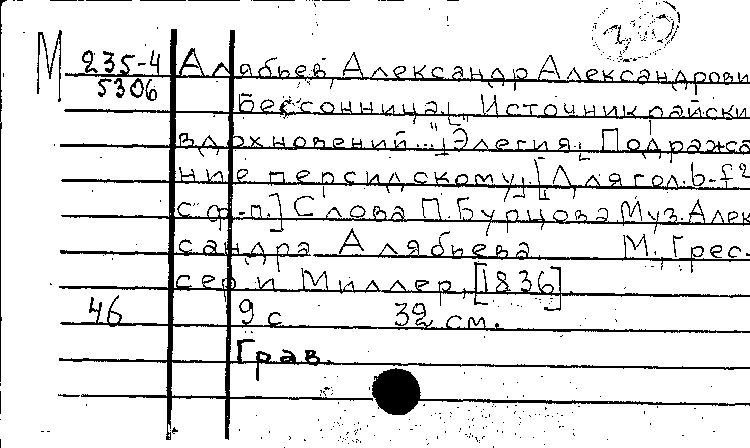 М 235-4 Алябьев, Александр Александрови
5306
Бессонница. [„Источник райски
вдохновений...“] Элегия. Подража
ние персидскому. [Для гол. b-f²
с ф-п.] Слова П. Бурцова Муз. Алек
сандра Алябьева. М., Грес-
сер и Миллер, [1836].
46 9 с 32 см.
Грав.